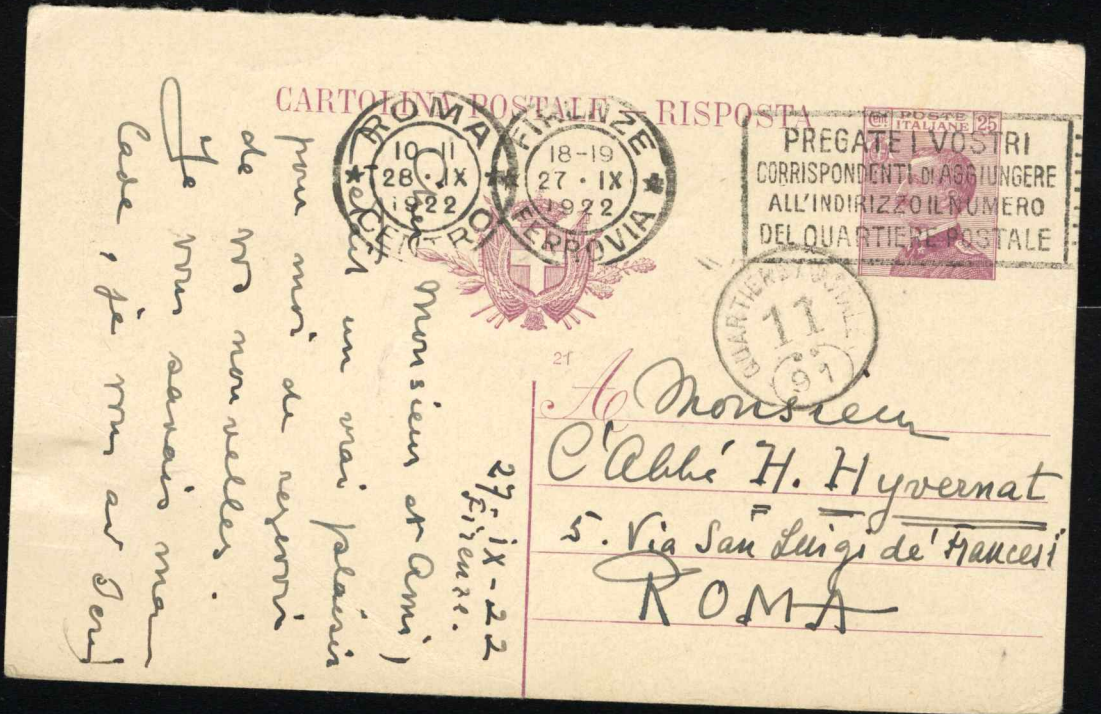 CARTOLINA POSTALE - RISPOSTA
ROMA
10-11
28 · IX
1922
CENTRO
FIRENZE
18-19
27 · IX
1922
FERROVIA
POSTE
ITALIANE 25
PREGATE I VOSTRI
CORRISPONDENTI DI AGGIUNGERE
ALL'INDIRIZZO IL NUMERO
DEL QUARTIERE POSTALE
QUARTIERE POSTALE
11
91
21
A Monsieur
L'Abbé H. Hyvernat
5. Via San Luigi de' Francesi
ROMA
27-IX-22
Firenze.
Monsieur et Ami,
un vrai plaisir
pour moi de recevoir
de vos nouvelles.
Je vous savais ma
lade, je vous ai